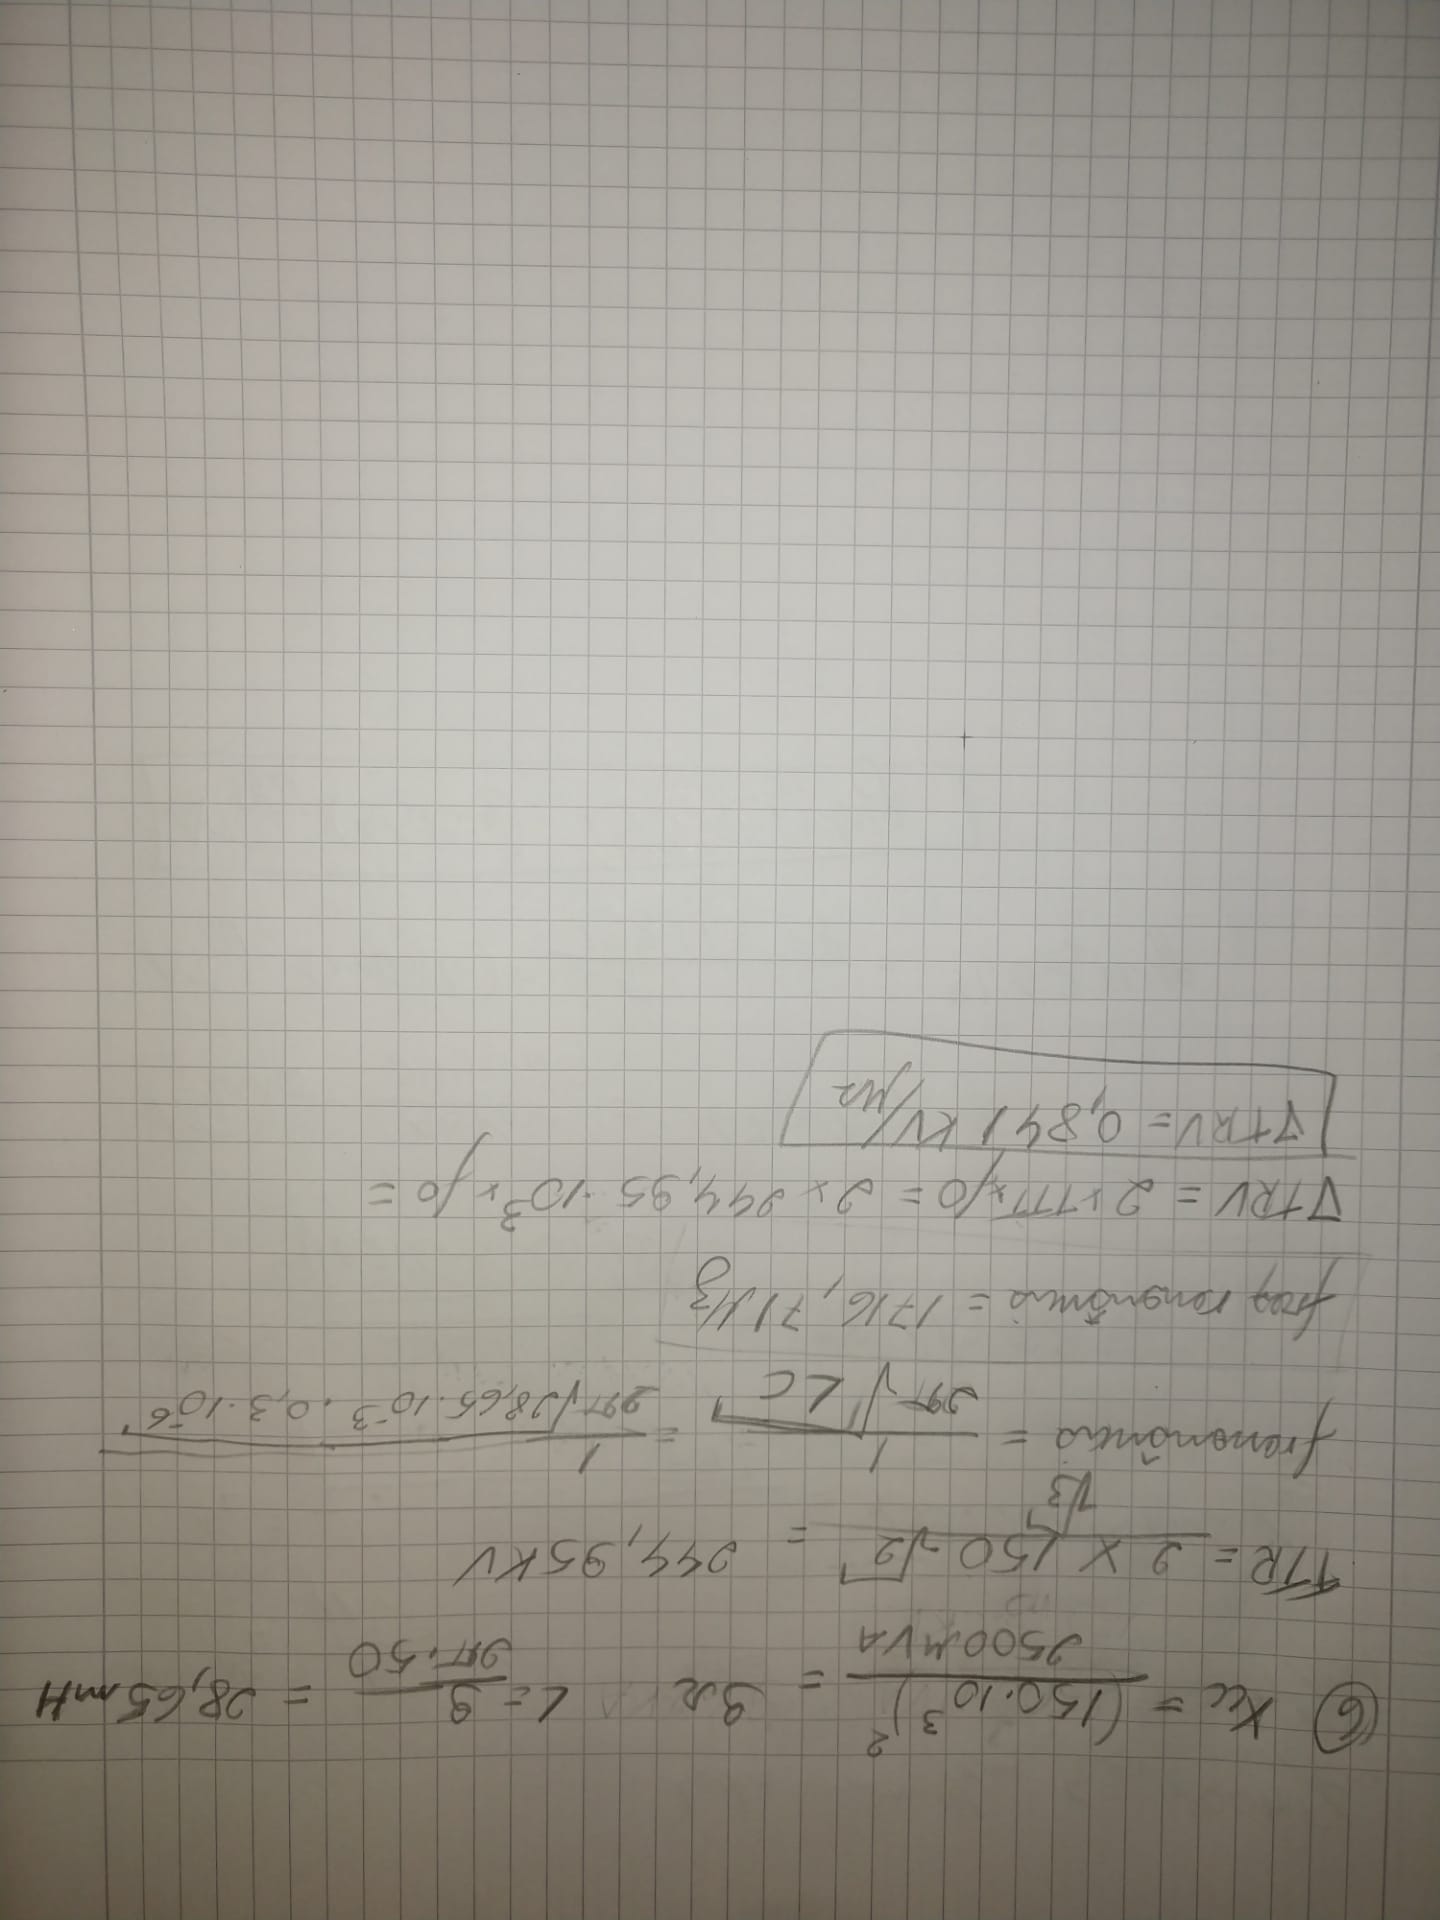 6 Xcc = (150.10³)² / 2500MVA = 9Ω L = 9 / 2π.50 = 28,65mH
TTR = 2 x 150 √2 / √3 = 244,95KV
fressonância = 1 / 2π√LC = 1 / 2π√28,65.10⁻³.0,3.10⁻⁶
freq ressonância = 1716,71Hz
∇TRV = 2xTTTxfo = 2x244,95.10³xfo =
∇TRV = 0,841 KV/μs